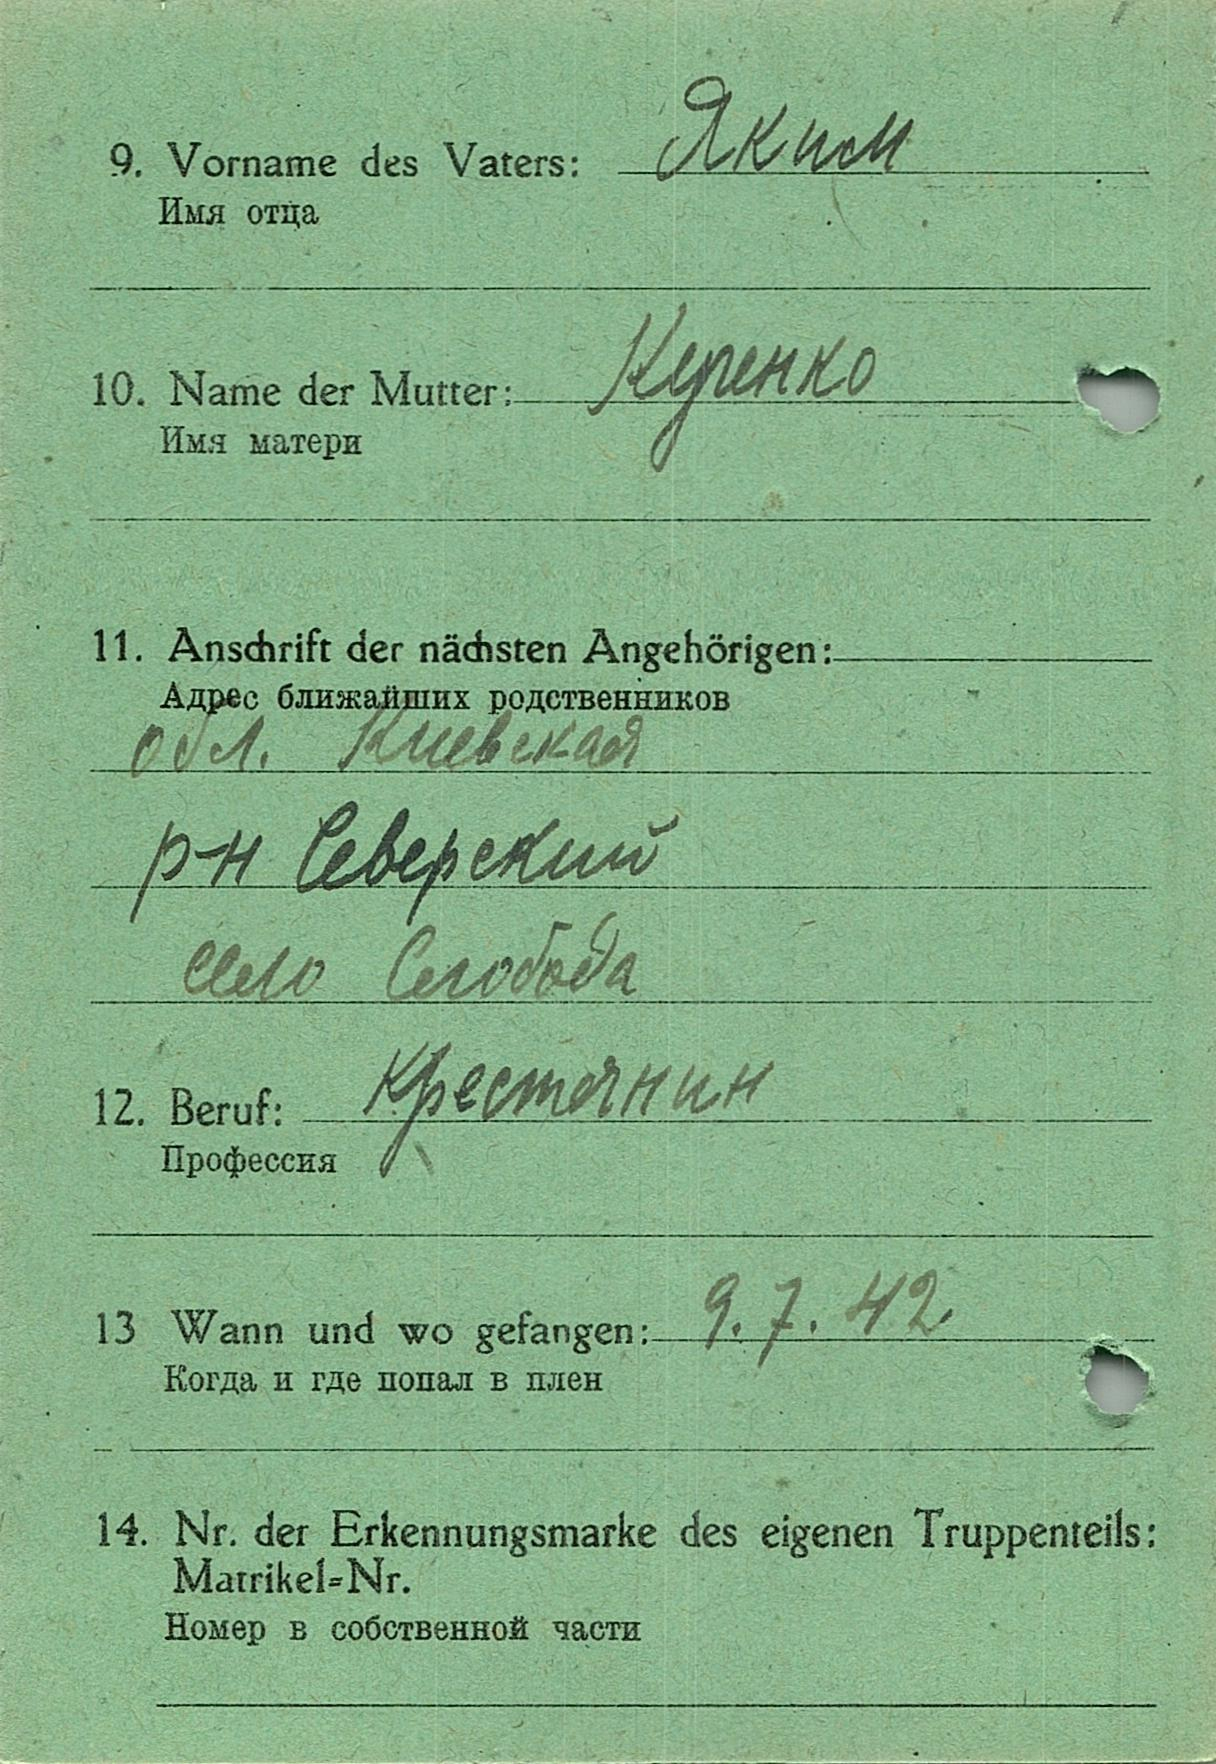 9. Vorname des Vaters: Яким
Имя отца
10. Name der Mutter: Куренко
Имя матери
11. Anschrift der nächsten Angehörigen:
Адрес ближайших родственников
обл. Киевская
р-н Северский
село Слобода
12. Beruf: Крестянин
Профессия
13 Wann und wo gefangen: 9.7.42
Когда и где попал в плен
14. Nr. der Erkennungsmarke des eigenen Truppenteils:
Matrikel-Nr.
Номер в собственной части